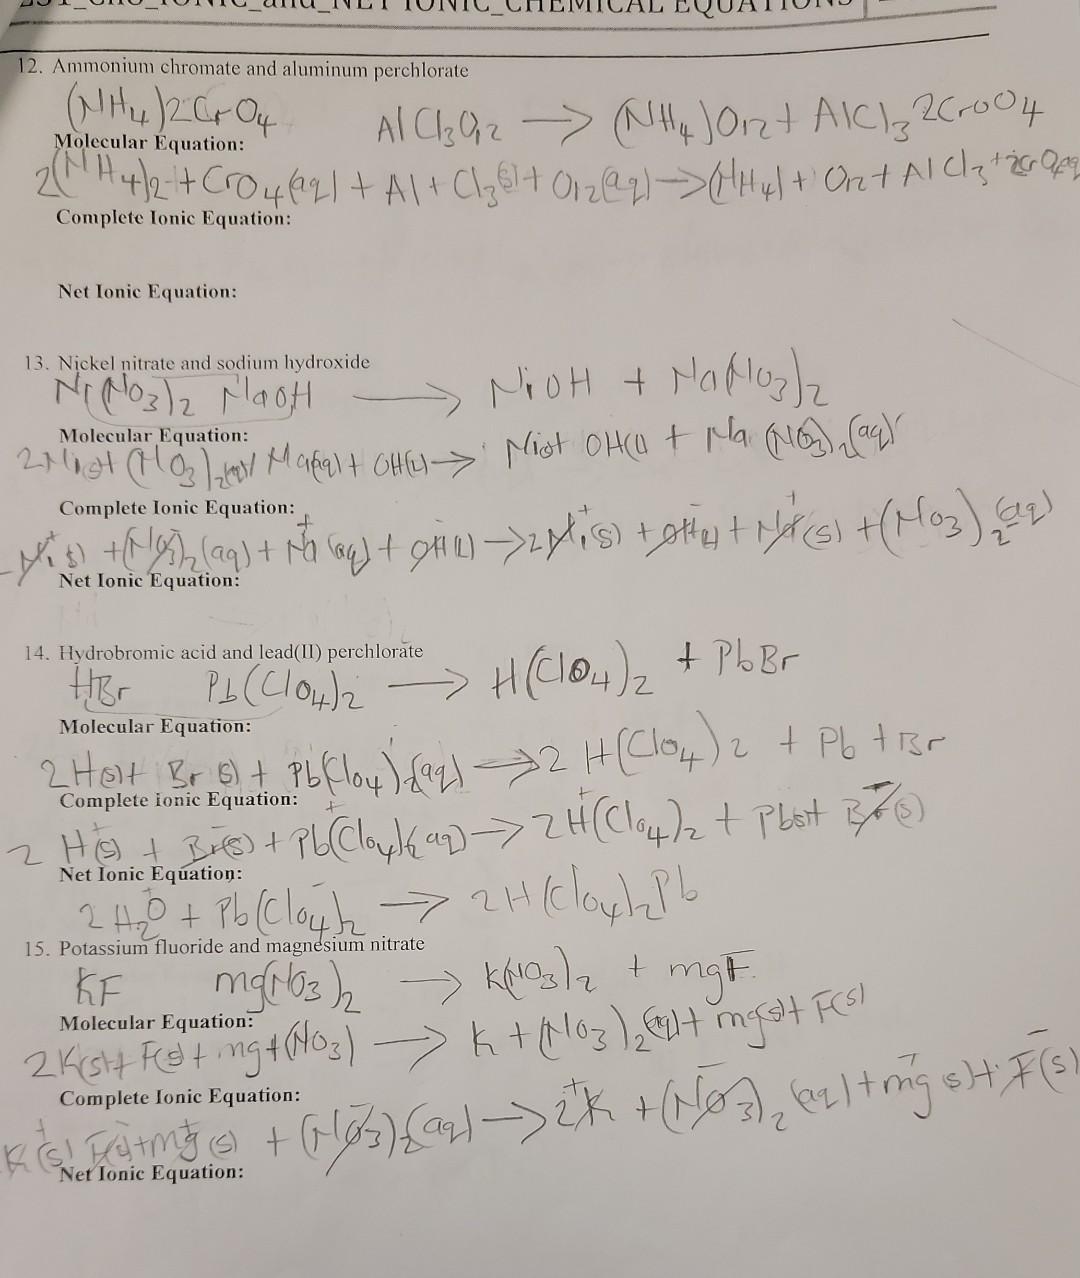 12. Ammonium chromate and aluminum perchlorate
(NH4)2CrO4 AlCl3O12 → (NH4)O12 + AlCl3 2CrO4
Molecular Equation:
2(NH4)2 + CrO4(aq) + Al + Cl3(s) + O12(aq) → (NH4) + O12 + AlCl3 +
Complete Ionic Equation:
Net Ionic Equation:
13. Nickel nitrate and sodium hydroxide
Ni(NO3)2 NaOH → NiOH + Na(NO3)2
Molecular Equation:
2Nis+ (NO3)2(aq) Na(aq) + OH(l) → Nis+ OH(l + Na (NO3)2(aq)
Complete Ionic Equation:
Ni+ s) + (NO3)2 (aq) + Na+ (aq) + OH(l) → 2Ni+(s) + OH(l) + Na+(s) + (NO3)2 (aq)
Net Ionic Equation:
14. Hydrobromic acid and lead(II) perchlorate
HBr Pb(ClO4)2 → H(ClO4)2 + PbBr
Molecular Equation:
2 H(s)+ Br (s) + Pb(ClO4)2(aq) → 2 H(ClO4)2 + Pb + Br
Complete Ionic Equation:
2 H+(s) + Br-(s) + Pb+(ClO4)2(aq) → 2H+(ClO4)2 + Pb(s)+ Br-(s)
Net Ionic Equation:
2H2O + Pb(ClO4)2 → 2H(ClO4)2Pb
15. Potassium fluoride and magnesium nitrate
KF mg(NO3)2 → K(NO3)2 + mgF
Molecular Equation:
2K(s)+ F(s) + mg+(NO3) → K + (NO3)2(aq)+ mg(s)+ F(s)
Complete Ionic Equation:
K+(s) F-(s)+mg+(s) + (NO3)2(aq) → 2+K + (NO3)2 (aq)+mg+ s)+ F-(s)
Net Ionic Equation: